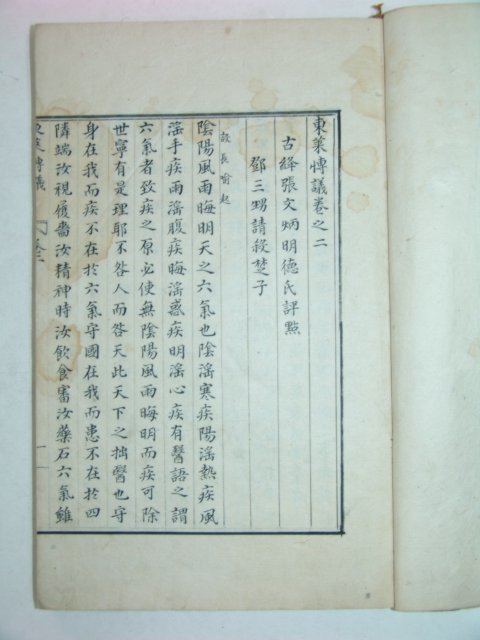 東萊博議卷之二
古絳張文炳明德氏評點
鄧三甥請殺楚子
設長喻起
陰陽風雨晦明天之六氣也陰滛寒疾陽滛熱疾風
滛手疾雨滛腹疾晦滛惑疾明滛心疾有醫語之謂
六氣者致疾之原必使無陰陽風雨晦明而疾可除
世寧有是理耶不咎人而咎天此天下之拙醫也守
身在我而疾不在於六氣守國在我而患不在於四
隣端汝視履嗇汝精神時汝飲食審汝藥石六氣雖
東萊博議